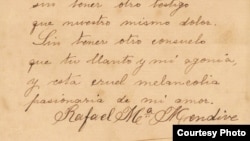 sin tener otro testigo
que nuestro mismo dolor.
Sin tener otro consuelo
que tu llanto y mi agonía
y esta cruel melancolía
pasionaria de mi amor.
Rafael Mª Mendive
Courtesy Photo